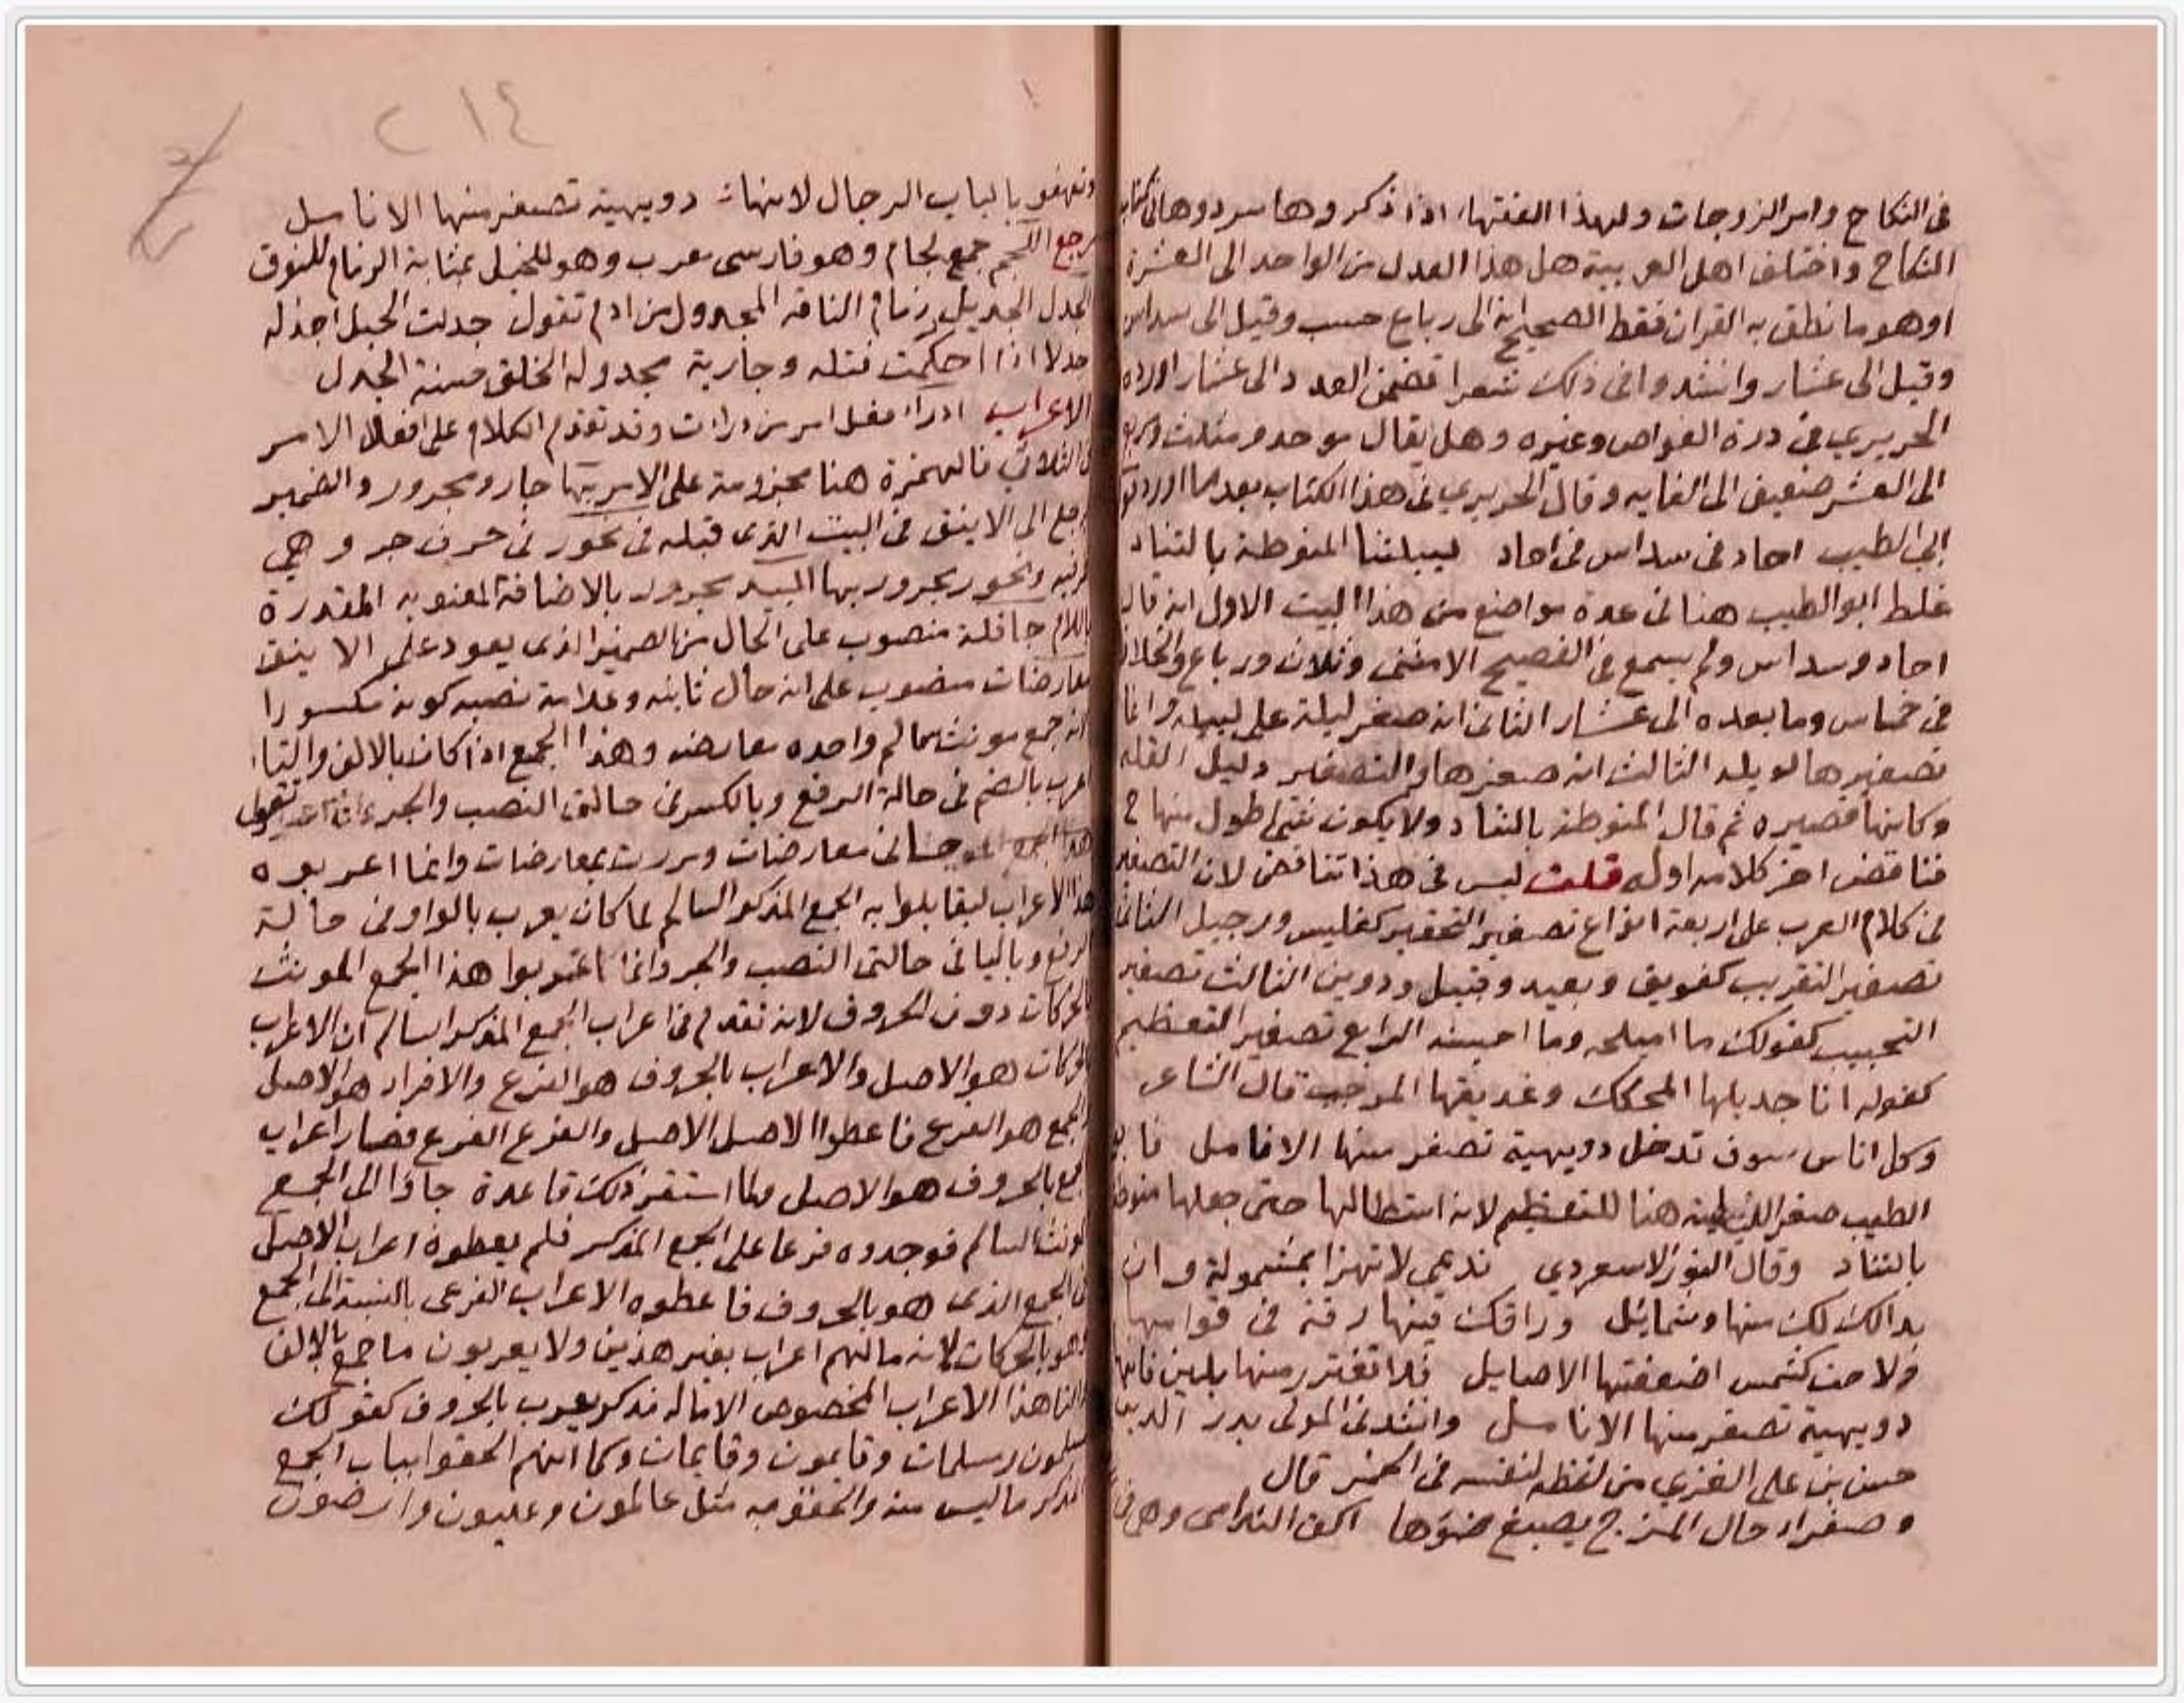 في النكاح وامر الزوجات ولهذا الفقهاء اذا ذكروها سردوها في كتاب
النكاح واختلف اهل العربية هل هذا العدل من الواحد الى العشرة
او هو ما نطق به القران فقط الصحيح انه الى رباع حسب وقيل الى سداس
وقيل الى عشار وانشدوا في ذلك شعرا تضمن العدد الى عشار اورده
الحريري في درة الغواص وغيره وهل يقال موحد ومثلث ومربع
الى العشر ضعيف الى الغايه وقال الحريري في هذا الكتاب بعدما اورد قول
ابي الطيب احاد في سداس في احاد لييلتنا المنوطة بالتناد
غلط ابو الطيب هنا في عدة مواضع من هذا البيت الاول انه قال
احاد وسداس ولم يسمع في الفصيح الا مثنى وثلاث ورباع والخلاف
في خماس وما بعده الى عشار الثاني انه صغر ليلة على لييله وانما
تصغيرها لويله الثالث انه صغرها والتصغير دليل القله
وكانها قصيره ثم قال المنوطة بالتناد ولا يكون شي اطول منها ح
فناقض اخر كلامه اوله قلت ليس في هذا تناقض لان التصغير
في كلام العرب على اربعة انواع تصغير التحقير كفليس ورجيل الثاني
تصغير التقريب كفويق وبعيد وقبيل ودوين الثالث تصغير
التحبيب كقولك ما اميلحه وما احيسنه الرابع تصغير التعظيم
كقوله انا جديلها المحكك وعذيقها المرجب قال الشاعر
وكل اناس سوف تدخل دويهية تصفر منها الانامل فابو
الطيب صغر الليلة هنا للتعظيم لانه استطالها حتى جعلها منوطة
بالتناد وقال النور الاسعردي نديمي لا تهزا بمشمولة وان
بدالك لك منها وشمايل وراقك منها رقة في قوامها
ولاحت كشمس اضعفتها الاصايل فلا تغترر منها بلين فانها
دويهية تصفر منها الانامل وانشدني المولى بدر الدين
حسن بن علي الغزي من لفظه لنفسه في الخمر قال
وصفراء حال المزج يصبغ ضوءها اكف الندامى وهي في
بالباب الرجال لانها دويهية تصفر منها الانامل
رجع اللجم جمع لجام وهو فارسي معرب وهو للخيل بمثابة الزمام للنوق
الجدل الجديل زمام الناقه المجدول من ادم تقول جدلت الحبل اجدله
جدلا اذا احكمت فتله وجارية مجدولة الخلق حسنة الجدل
الاعراب ادرا فعل امر من درات وقد تقدم الكلام على افعال الامر
في الثلاثي فالهمزة هنا مجزومة على الامر بها جار ومجرور والضمير
راجع الى الاينق في البيت الذي قبله في نحور في حرف جر وهي
ظرفيه ونحور مجرور بها البيد مجرور بالاضافة المعنويه المقدرة
باللام جافلة منصوب على الحال من الضمير الذي يعود على الاينق
معارضات منصوب على انه حال ثانيه وعلامة نصبه كونه مكسورا
لانه جمع مونث سالم واحده معارضه وهذا الجمع اذا كان بالالف والتاء
اعرب بالضم في حالة الرفع وبالكسر في حالتي النصب والجر تقول
هذا جاني معارضات ومررت بمعارضات وانما اعربوه
هذا الاعراب ليقابلوا به الجمع المذكر السالم لما كان يعرب بالواو في حالة
الرفع وبالياء في حالتي النصب والجر وانما اعربوا هذا الجمع المونث
بالحركات دون الحروف لانه تقدم في اعراب الجمع المذكر السالم ان الاعراب
بالحركات هو الاصل والاعراب بالحروف هو الفرع والافراد هو الاصل
والجمع هو الفرع فاعطوا الاصل الاصل والفرع الفرع فصار اعراب
الجمع بالحروف هو الاصل ولما استقر ذلك قاعدة جاوا الى الجمع
المونث السالم فوجدوه فرعا على الجمع المذكر فلم يعطوه اعراب الاصل
في الجمع الذي هو بالحروف فاعطوه الاعراب الفرعي بالنسبة الى الجمع
وهو بالحركات لانه مالهم اعراب بغير هذين ولا يعربون ما جمع بالالف
والتا هذا الاعراب المخصوص الا ماله مذكر يعرب بالحروف كقولك
مسلمون ومسلمات وقايمون وقايمات وكما انهم الحقوا بباب الجمع
المذكر ما ليس منه والحقوه به مثل عالمون وعليون وارضون